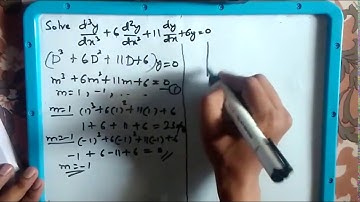 Solve d³y/dx³ + 6 d²y/dx² + 11 dy/dx + 6y = 0
(D³ + 6D² + 11D + 6)y = 0
m³ + 6m² + 11m + 6 = 0 — ①
m = 1, -1, ...
m=1 (1)³ + 6(1)² + 11(1) + 6
1 + 6 + 11 + 6 = 23
m=-1 (-1)³ + 6(-1)² + 11(-1) + 6
-1 + 6 - 11 + 6 = 0
m = -1